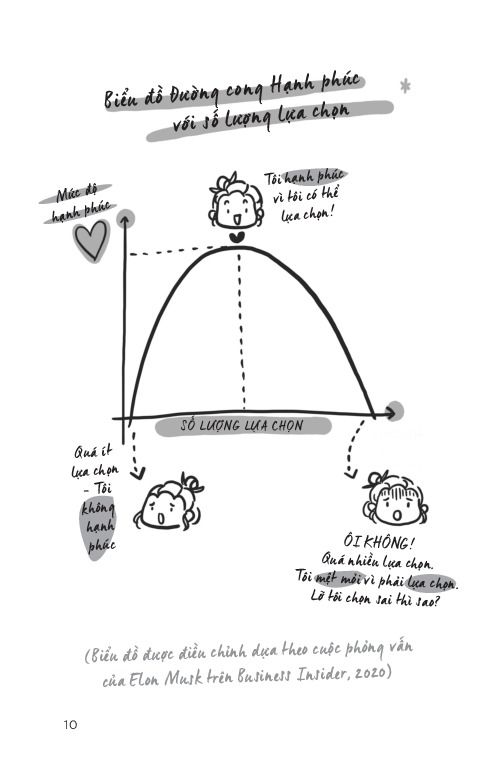 Biểu đồ Đường cong Hạnh phúc
với số lượng lựa chọn
*
Mức độ
hạnh phúc
Tôi hạnh phúc
vì tôi có thể
lựa chọn!
SỐ LƯỢNG LỰA CHỌN
Quá ít
lựa chọn
- Tôi
không
hạnh
phúc
ÔI KHÔNG!
Quá nhiều lựa chọn.
Tôi mệt mỏi vì phải lựa chọn.
Lỡ tôi chọn sai thì sao?
(Biểu đồ được điều chỉnh dựa theo cuộc phỏng vấn
của Elon Musk trên Business Insider, 2020)
10